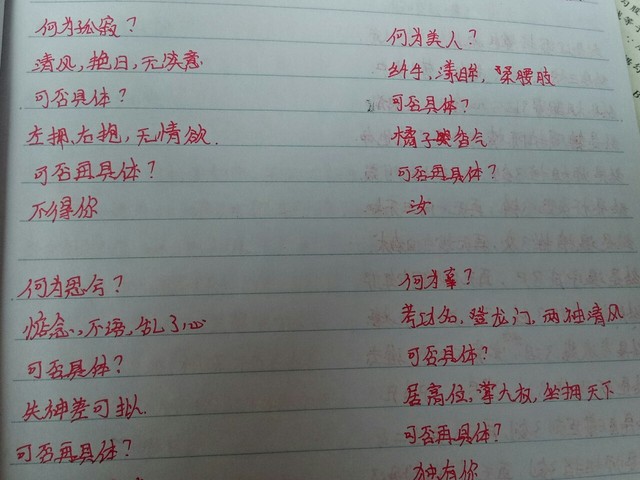 何为孤寂？
清风，艳日，无笑意
可否具体？
左拥，右抱，无情欲．
可否再具体？
不得你
何为美人？
纤手，漾眸，柔腰肢
可否具体？
橘子香气
可否再具体？
汝
何为思兮？
惦念，不语，乱了心
可否具体？
失神差可拟．
可否再具体？
何为幸？
考功名，登龙门，两袖清风
可否具体？
居高位，掌大权，坐拥天下
可否再具体？
独有你